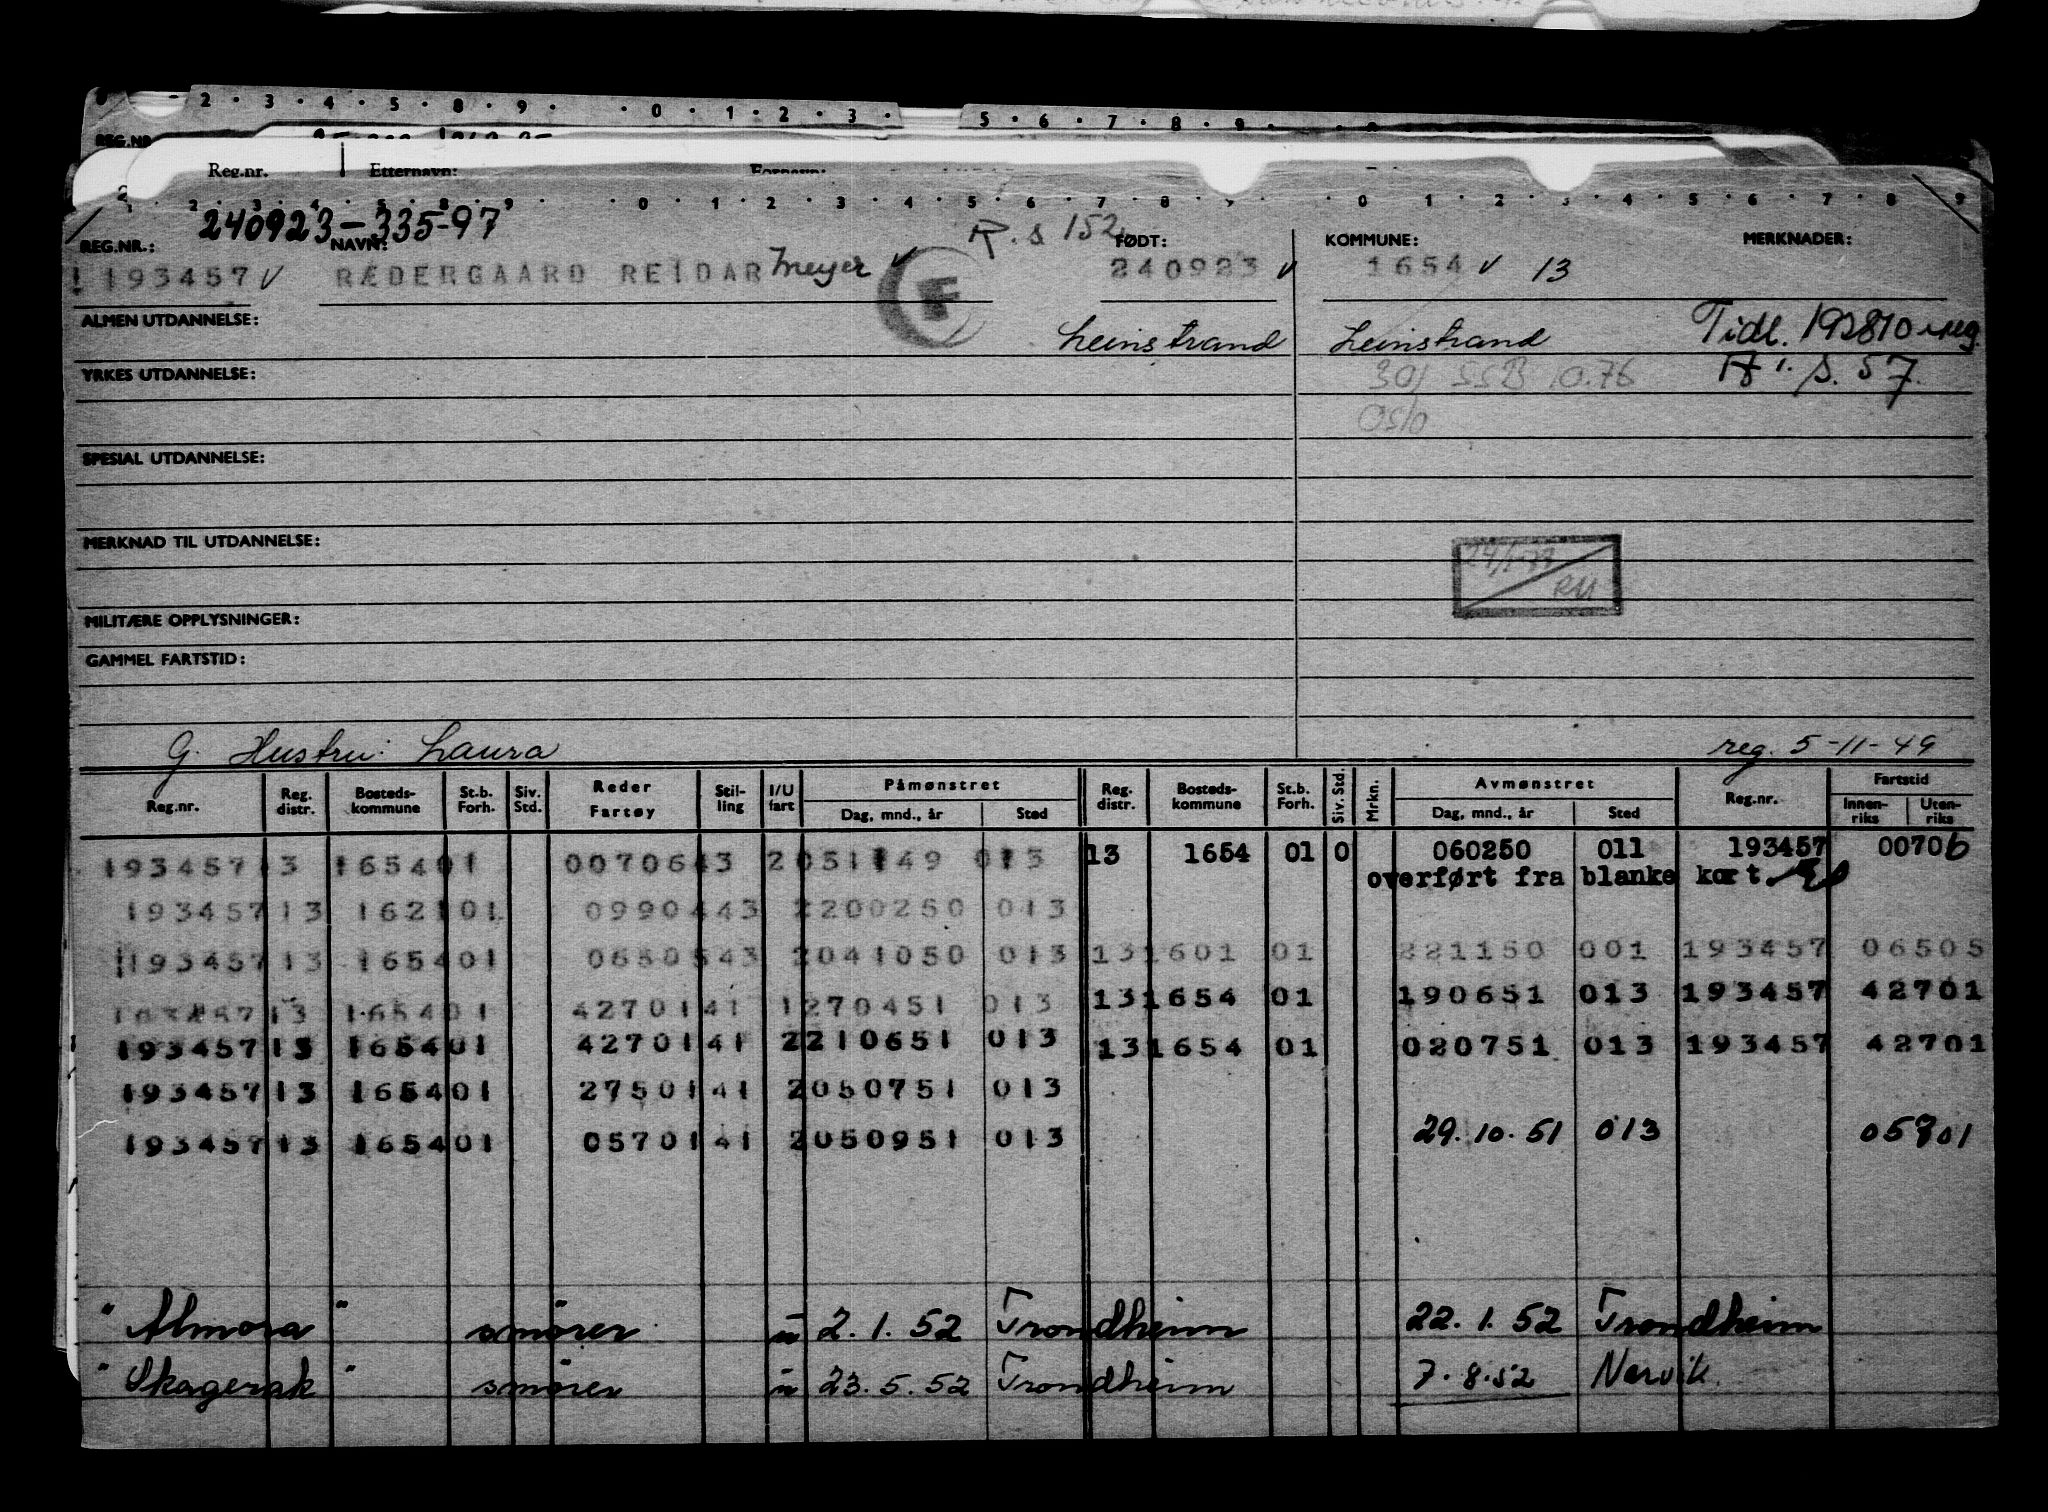 2 · 3 · 4 · 5 · 8 · 9 · · 0 · 1 · 2 · 3 · 5 · 6 · 7 · 8 · 9 ·
REG.NR
Reg.nr. Etternavn: Fornavn:
1 · 2 · 3 · 4 · 5 · 8 · 9 · · 0 · 1 · 2 · 3 · 4 · 5 · 6 · 7 · 8 · 9 · · 0 · 1 · 2 · 3 · 4 · 5 · 6 · 7 · 8 · 9
240923-335-97 R. s 152
REG.NR.: NAVN: FØDT: KOMMUNE: MERKNADER:
! 193457 v RÆDERGAARD REIDAR Meyer v F 240923 v 1654 v 13
ALMEN UTDANNELSE: Leinstrand Leinstrand Tidl. 192870 i reg.
YRKES UTDANNELSE: 301 SSB 10.76 A i. s. 57.
Oslo
SPESIAL UTDANNELSE:
MERKNAD TIL UTDANNELSE:
RM
MILITÆRE OPPLYSNINGER:
GAMMEL FARTSTID:
G. Hustru: Laura reg. 5-11-49
Reg.nr. Reg. distr. Bosteds-kommune St.b. Forh. Siv. Std. Reder Fartøy Stil-ling I/U fart Påmønstret Dag, mnd., år Sted Reg. distr. Bosteds-kommune St.b. Forh. Siv. Std. Mrkn. Avmønstret Dag, mnd., år Sted Reg.nr. Fartstid Innen-riks Uten-riks
193457 13 1654 01 00706 43 2 051149 013 13 1654 01 0 060250 011 193457 00706
overført fra blanke kort
193457 13 1621 01 09904 43 2 200250 013
! 193457 13 1654 01 06505 43 2 041050 013 13 1601 01 221150 001 193457 06505
193457 13 1654 01 42701 41 1 270451 013 13 1654 01 190651 013 193457 42701
193457 13 1654 01 42701 41 2 210651 013 13 1654 01 020751 013 193457 42701
193457 13 1654 01 27501 41 2 050751 013
193457 13 1654 01 05701 41 2 050951 013 29.10.51 013 05701
" Almora " smører u 2.1.52 Trondheim 22.1.52 Trondheim
" Skagerak " smører u 23.5.52 Trondheim 7.8.52 Narvik.